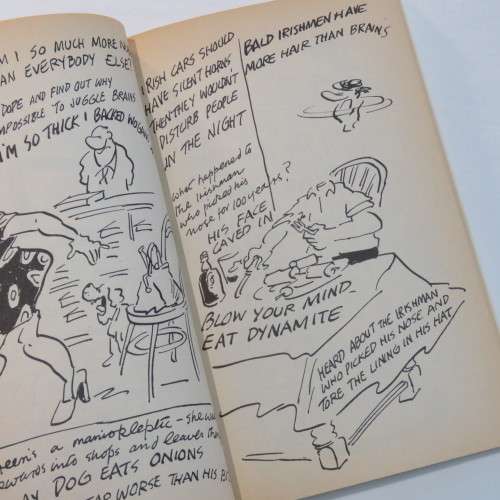 M I SO MUCH MORE
AN EVERYBODY ELSE?
DOPE AND FIND OUT WHY
MPOSSIBLE TO JUGGLE BRAINS
I'M SO THICK I BACKED
een's a manic kleptic - she
wards into shops and leaves
DOG EATS ONIONS
WORSE THAN HIS B
RISH CARS SHOULD
HAVE SILENT HORNS
THEN THEY WOULDN'T
DISTURB PEOPLE
IN THE NIGHT
BALD IRISHMEN HAVE
MORE HAIR THAN BRAINS
what happened to
the Irishman
who picked his
nose for 100 years?
HIS FACE
CAVED IN
BLOW YOUR MIND
EAT DYNAMITE
HEARD ABOUT THE IRISHMAN
WHO PICKED HIS NOSE AND
TORE THE LINING IN HIS HAT